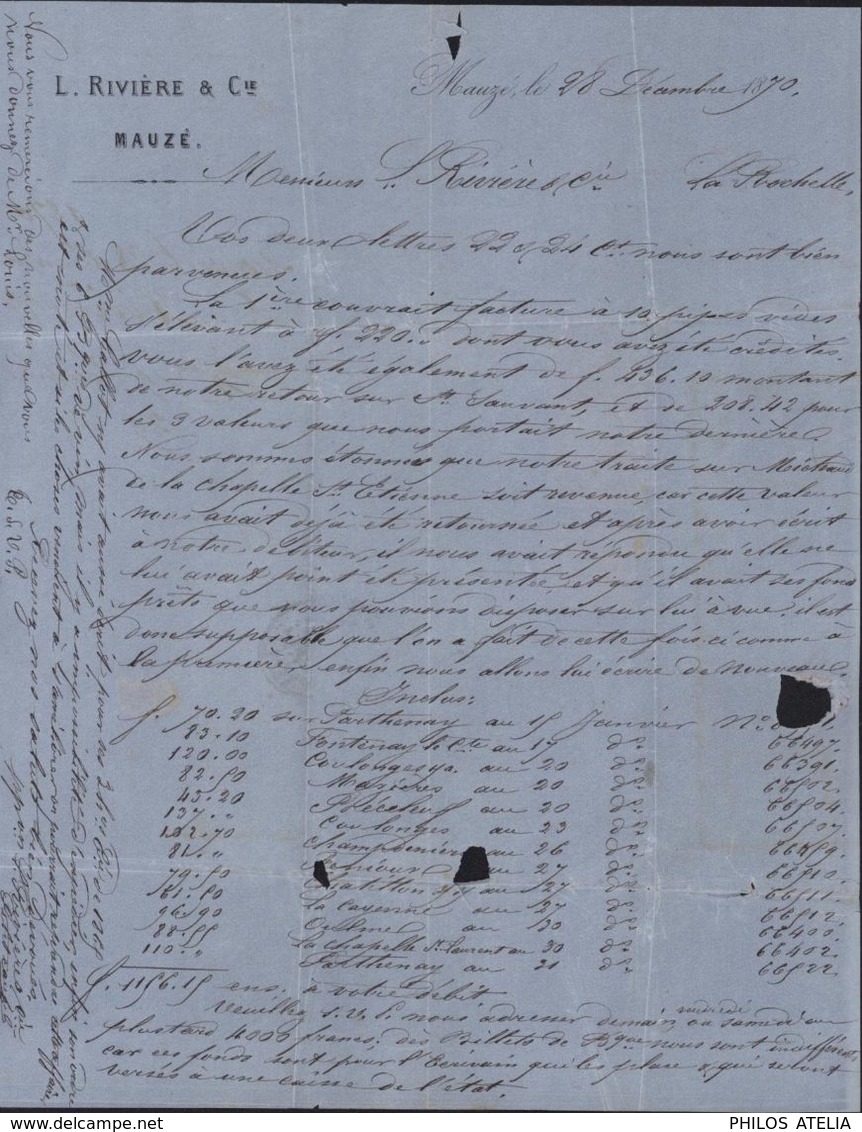 L. RIVIÈRE & CIE
MAUZÉ.
Mauzé, le 28 Décembre 1870.
Messieurs L. Rivière & Cie La Rochelle,
Vos deux lettres 22 & 24 Ct. nous sont bien
parvenues.
La 1ère couvrait facture à 10 pipes vides
s'élevant à f. 220. dont vous avez été crédités.
vous l'avez été également de f. 436.10 montant
de notre retour sur St Sauvant, et de 208.42 pour
les 3 valeurs que nous portait notre dernière.
Nous sommes étonnés que notre traite sur Michaud
de la Chapelle St Etienne soit revenue, car cette valeur
nous avait déjà été retournée et après avoir écrit
à notre débiteur, il nous avait répondu qu'elle ne
lui avait point été présentée, et qu'il avait ses fonds
prêts que nous pouvions disposer sur lui à vue. il est
donc supposable que l'on a fait de cette fois-ci comme à
la première, enfin nous allons lui écrire de nouveau.
Inclus:
f. 70.20 sur Parthenay au 15 Janvier No.
83.10 Fontenay le Cte au 17 do. 66497.
120.00 Coulonges au 20 do. 66391.
82.50 Mazières au 20 do. 66502.
45.20 au 20 do. 66504.
137. " Coulonges au 23 do. 66507.
102.70 Champdeniers au 26 do.
81. " au 27 do. 66510.
79.50 Chatillon au 27 do. 66511.
61.50 La Cayenne au 27 do. 66512.
96.90 au 30 do. 66400.
88.55 La Chapelle St Laurent au 30 do. 66402.
110. " Parthenay au 31 do. 66522.
f. 1156.15 ens. à votre débit
Veuillez s.v.p. nous adresser demain vendredi ou samedi au
plus tard 4000 francs. des Billets de Bque nous sont indifférents
car ces fonds sont pour l'Ecrivain qui les place & qui seront
versés à une caisse de l'état.
Nous vous remercions des nouvelles que vous
nous donnez de Mr Louis.
Recevez nos saluts bien dévoués
L. d. V. P.
PHILOS ATELIA